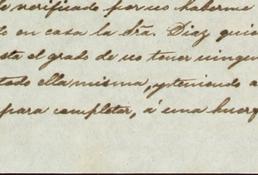 verificado por no haberme
en casa la Sra. Diaz quie
sta el grado de no tener ningu
todo ella misma, y teniendo a
para completar, á una huerf